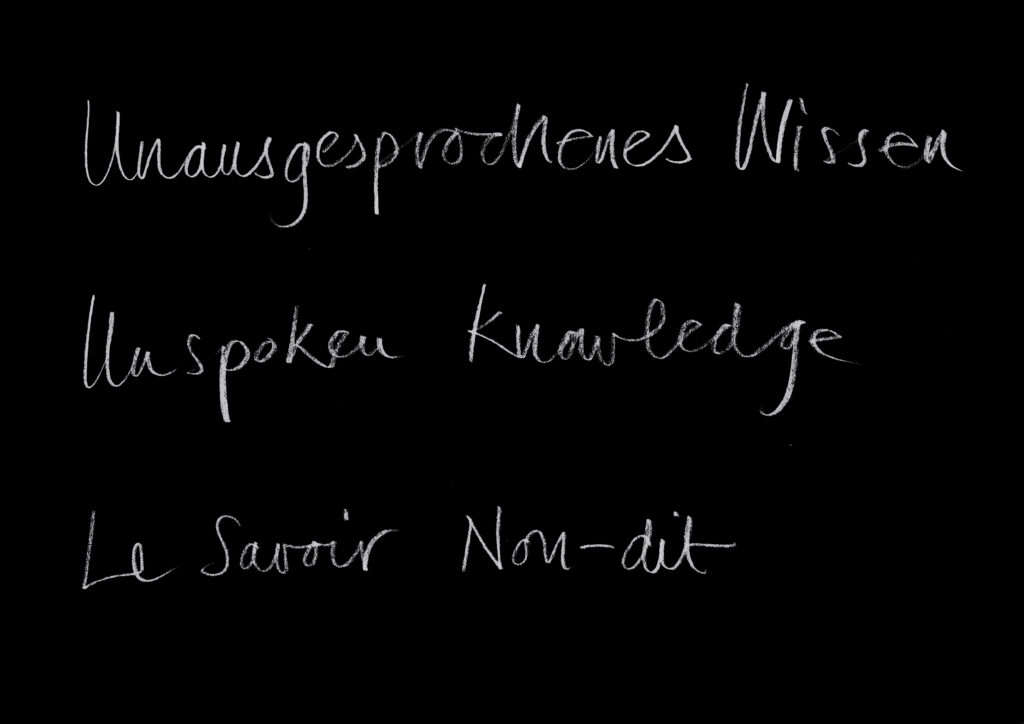 Unausgesprochenes Wissen
Unspoken Knowledge
Le Savoir Non-dit